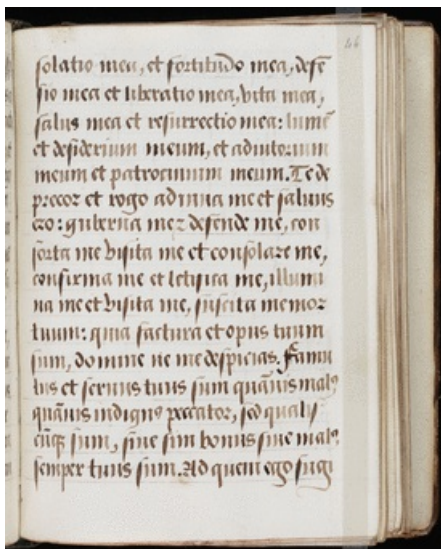 46
solatio mea, et fortitudo mea, defẽ
sio mea et liberatio mea, vita mea,
salus mea et resurrectio mea: lumẽ
et desiderium meum, et adiutorium
meum et patrocinium meum. Te de
precor et rogo adiuua me et saluus
ero: guberna me z defende me, con
forta me visita me et consolare me,
confirma me et letifica me, illumi
na me et visita me, suscita memor
tuum: quia factura et opus tuum
sum, domine ne me despicias. Famu
lus et seruus tuus sum quãuis malꝰ
quãuis indignꝰ peccator, sed qualis
cũqꝫ sum, siue sim bonus siue malꝰ
semper tuus sum. Ad quem ego fugi